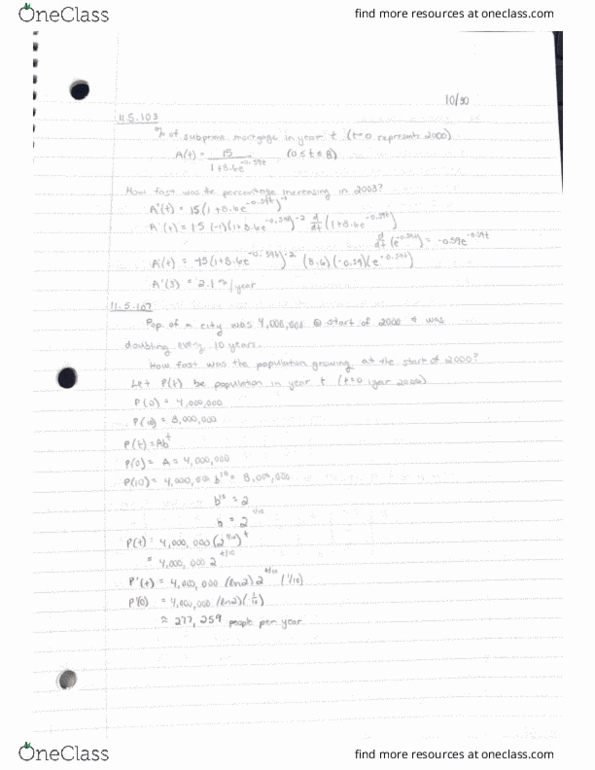 OneClass
find more resources at oneclass.com
10/30
11.5.103
% of subprime mortgage in year t (t=0 represents 2000)
A(t) = 15 / 1+8.6e^-0.59t , (0 ≤ t ≤ 8)
How fast was the percentage increasing in 2003?
A(t) = 15(1+8.6e^-0.59t)^-1
A'(t) = 15(-1)(1+8.6e^-0.59t)^-2 d/dt (1+8.6e^-0.59t)
d/dt (e^-0.59t) = -0.59e^-0.59t
A'(t) = -15(1+8.6e^-0.59t)^-2 (8.6)(-0.59)(e^-0.59t)
A'(3) = 2.1 %/year
11.5.107
Pop. of a city was 4,000,000 @ start of 2000 & was
doubling every 10 years.
How fast was the population growing at the start of 2000?
Let P(t) be population in year t (t=0 year 2000)
P(0) = 4,000,000
P(10) = 8,000,000
P(t) = Ab^t
P(0) = A = 4,000,000
P(10) = 4,000,000 b^10 = 8,000,000
b^10 = 2
b = 2^1/10
P(t) = 4,000,000 (2^1/10)^t
= 4,000,000 2^t/10
P'(t) = 4,000,000 (ln2) 2^t/10 (1/10)
P'(0) = 4,000,000 (ln2)(1/10)
≈ 277,259 people per year
OneClass
find more resources at oneclass.com